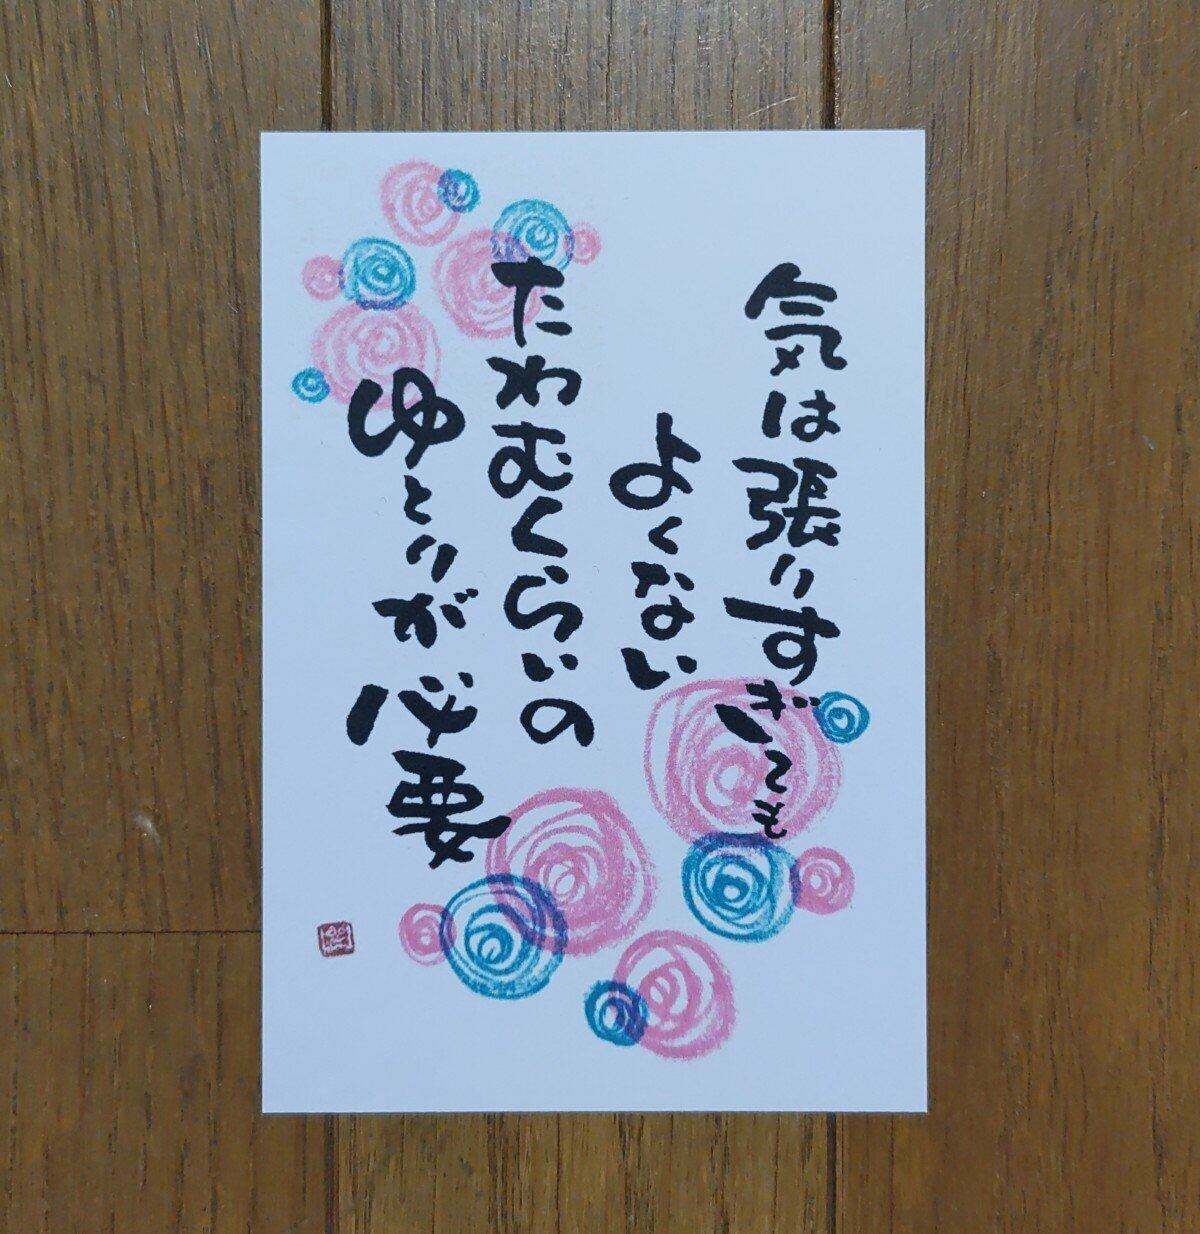 気は張りすぎても
よくない
たわむくらいの
ゆとりが必要